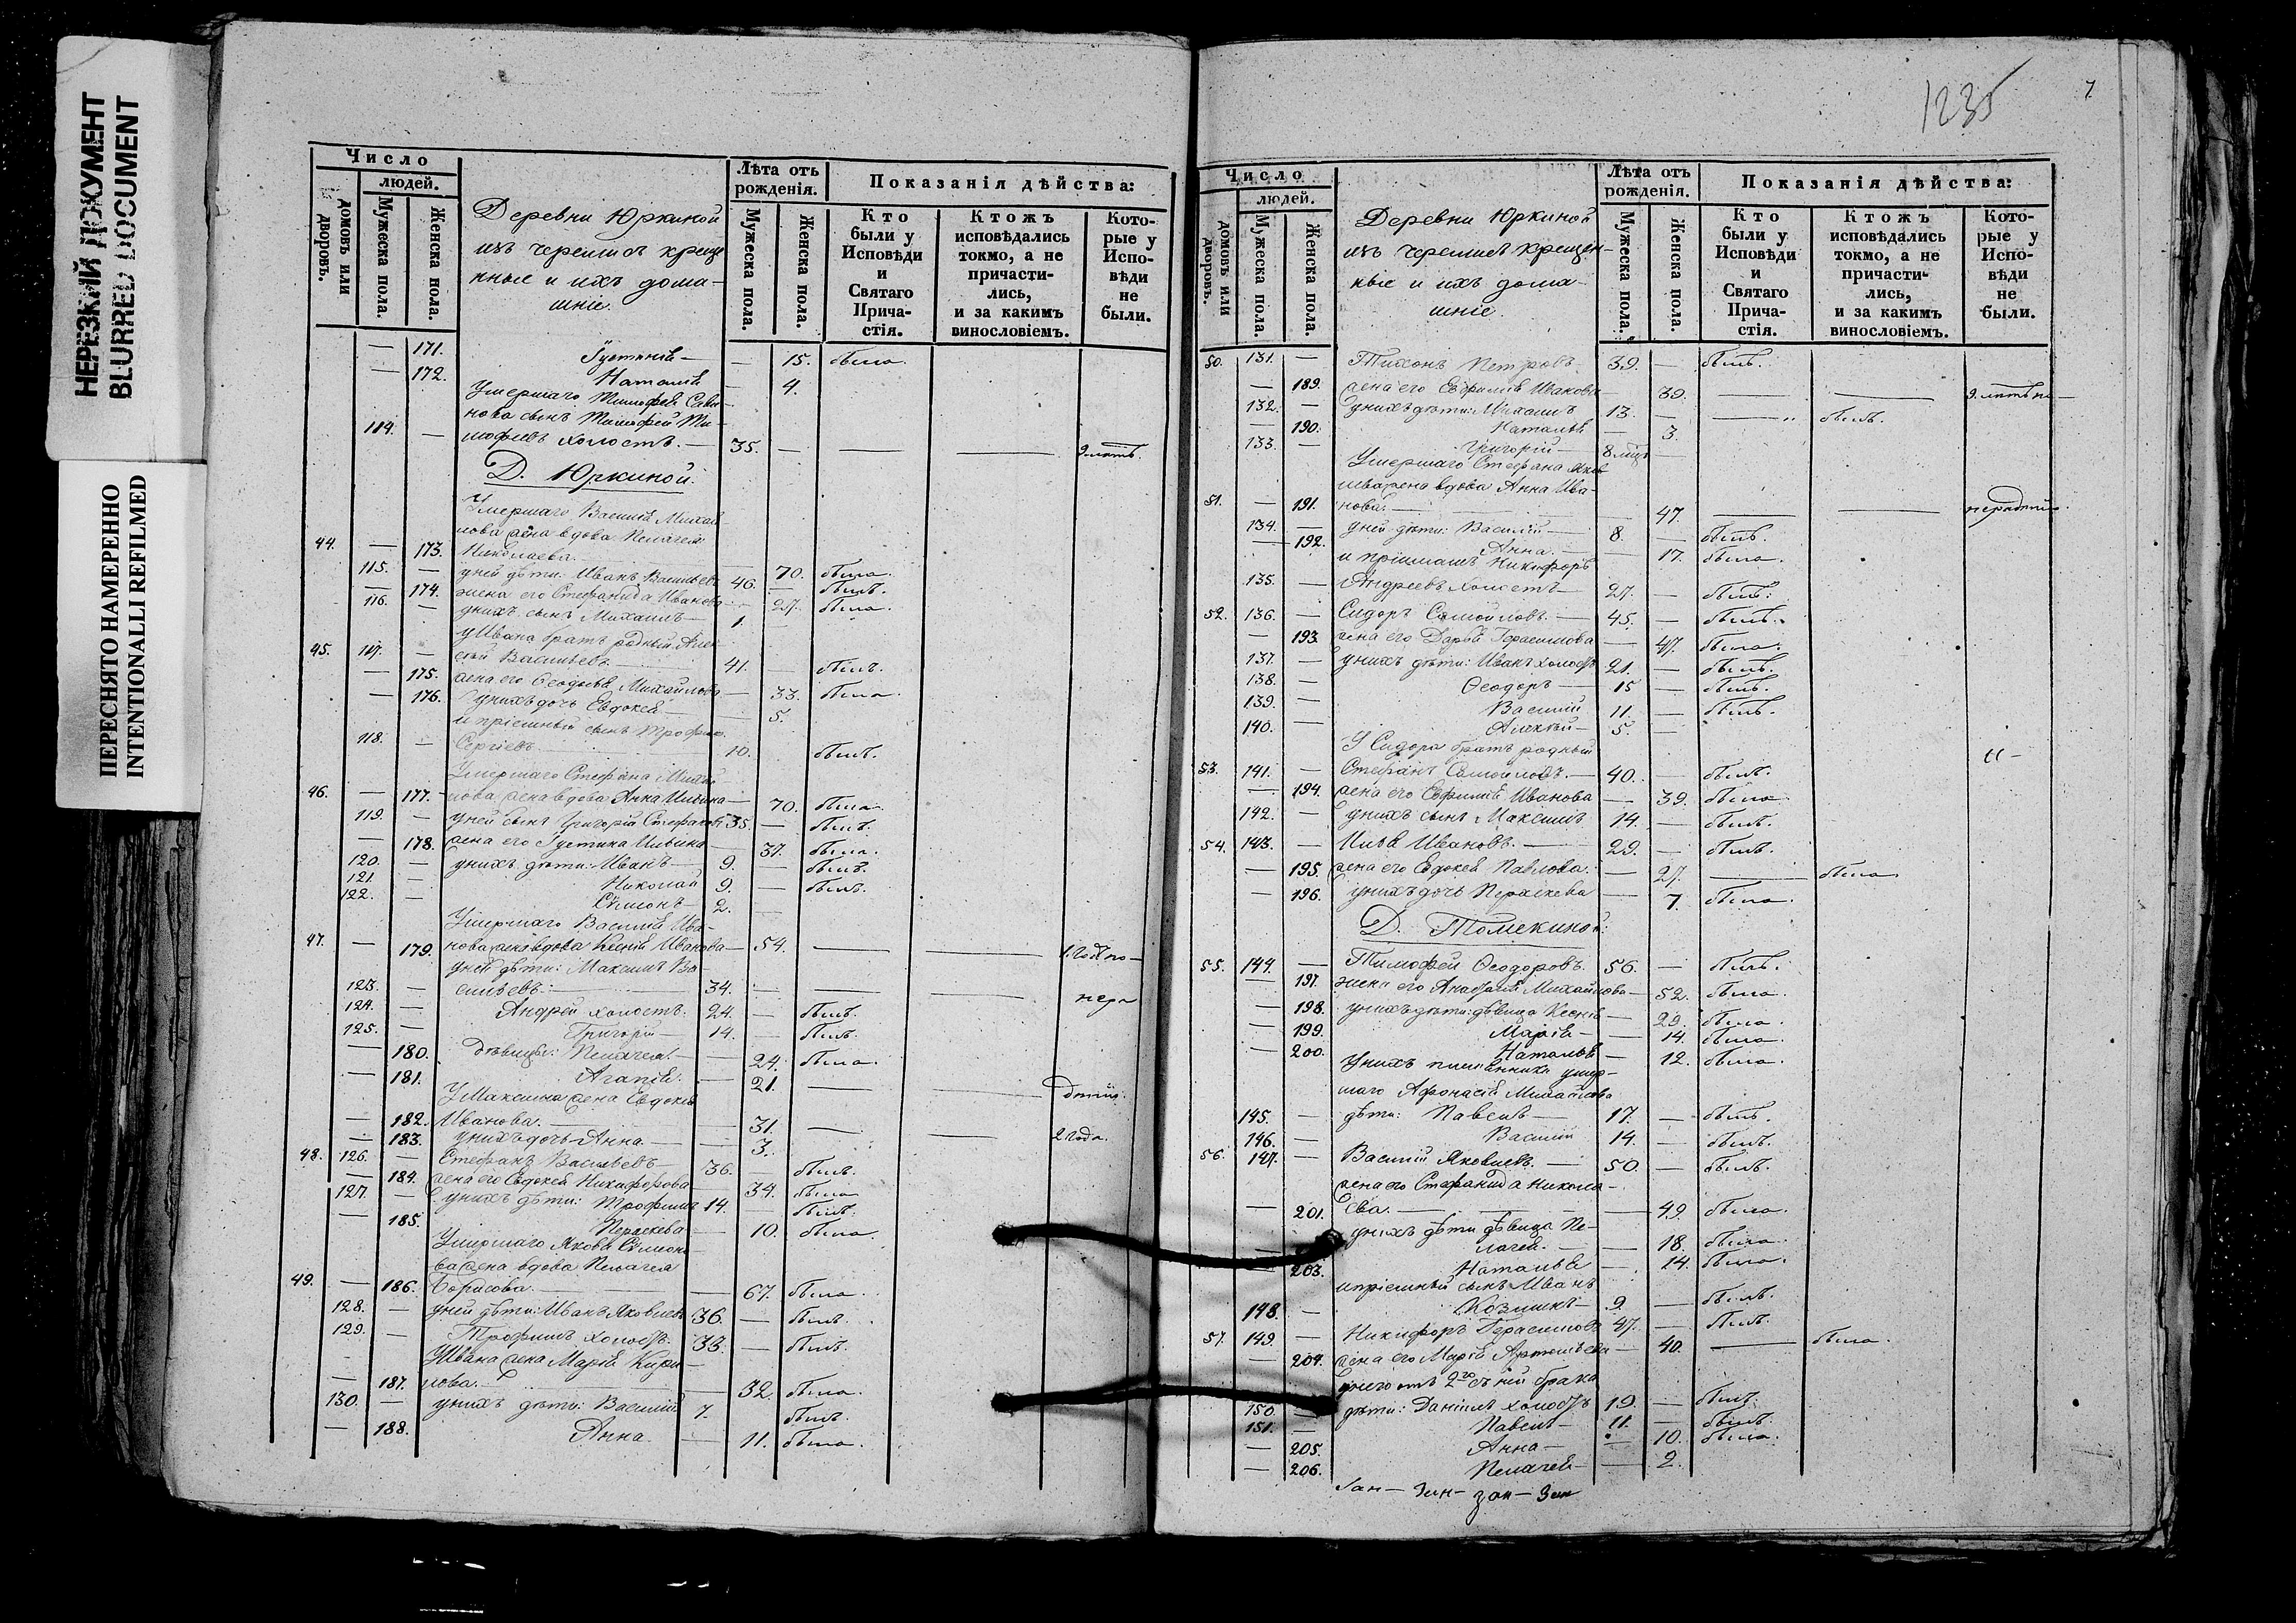 НЕРЕЗКИЙ ДОКУМЕНТ
BLURRED DOCUMENT
ПЕРЕСНЯТО НАМЕРЕННО
INTENTIONALLI REFILMED
Число
людей.
домовъ или дворовъ.
Мужеска пола.
Женска пола.
Деревни Юркиной
изъ черемисъ креще
нные и ихъ дома-
шніе.
Лѣта отъ рожденія.
Мужеска пола.
Женска пола.
Показанія дѣйства:
Кто были у Исповѣди и Святаго Прича- стія.
Ктожъ исповѣдались токмо, а не причасти- лись, и за какимъ винословіемъ.
Кото- рые у Испо- вѣди не были.
— 171. Іустинія — — 15. была.
— 172. Наталія — 4.
Умершаго Тимофея Сави-
нова сынъ Тимофей Ти-
114. — мофеевъ холостъ. — 35. — — —
Д. Юркиной.
Умершаго Василія Михай
лова жена вдова Пелагея
44. — 173. Николаева. — 70. была.
115. — у ней дѣти: Иванъ Васильевъ 46. — былъ.
— 174. жена его Стефанида Иванова — 27. была.
116. — у нихъ сынъ Михаилъ — 1. —
у Ивана братъ родный Алек
45. 117. — сѣй Васильевъ — 41. — былъ.
— 175. жена его Ѳеодосья Михайлова — 33. была.
— 176. у нихъ дочь Евдокея — 5.
и пріемный сынъ Трофим
118. — Сергіевъ — 10. былъ.
Умершаго Стефана Михай
46. — 177. лова жена вдова Анна Ильина — 70. была.
119. — у ней сынъ Григорій Стефановъ 35. — былъ.
— 178. жена его Іустина Ильина — 37. была.
120. — у нихъ дѣти: Иванъ — 9. — былъ.
121. — Николай 9. — былъ.
122. — Сѵмеонъ — 2. —
Умершаго Василія Ива-
47. — 179. нова жена вдова Ксенія Иванова — 54. — —
у ней дѣти: Максимъ Ва-
123. — сильевъ: — 34. — —
124. — Андрей холостъ. 24. — былъ.
125. — Григорій — 14. — былъ.
— 180. дѣвицы: Пелагея — — 24. была.
— 181. Агапія. — 21. —
У Максима жена Евдокея
— 182. Иванова. — 31. —
— 183. у нихъ дочь Анна — — 3. — 2 года.
48. 126. — Стефанъ Васильевъ — 36. — былъ.
— 184. жена его Евдокея Никифорова 34. была
127. — у нихъ дѣти: Трофимъ 14. — былъ.
— 185. Параскева — 10. была.
Умершаго Якова Сѵмеоно-
ва жена вдова Пелагея
49. — 186. Борисова. — 67. была.
128. — у ней дѣти: Иванъ Яковлевъ 36. — былъ.
129. — Трофимъ холостъ. 33. — былъ.
У Ивана жена Марія Кири-
— 187. лова. — 32. была.
130. — у нихъ дѣти: Василій 7. былъ.
— 188. Анна. — 11. была.
1235
7.
Число
людей.
домовъ или дворовъ.
Мужеска пола.
Женска пола.
Деревни Юркиной
изъ черемисъ крещен-
ные и ихъ дома-
шніе.
Лѣта отъ рожденія.
Мужеска пола.
Женска пола.
Показанія дѣйства:
Кто были у Исповѣди и Святаго Прича- стія.
Ктожъ исповѣдались токмо, а не причасти- лись, и за какимъ винословіемъ.
Кото- рые у Испо- вѣди не были.
50. 131. — Тихонъ Петровъ. 39. — былъ.
— 189. жена его Евфимія Иванова 39. — —
132. — у нихъ дѣти: Михаилъ 13. — — былъ.
— 190. Наталья — 3.
133. — Григорій — 8 мѣц —
Умершаго Стефана Яков
лева жена вдова Анна Ива-
51. — 191. нова. — — 47. — —
134. — у ней дѣти: Василій — 8. — былъ.
— 192. Анна. — — 17. была.
и пріимышъ Никифоръ
135. — Андреевъ холостъ — 27. — былъ.
52. 136. — Сидоръ Самойловъ. — 45. — былъ.
— 193. жена его Дарья Герасимова — 47. была.
137. — у нихъ дѣти: Иванъ холостъ 21. — былъ.
138. — Ѳеодоръ — 15 — былъ.
139. — Василій 11. — былъ.
140. — Алексѣй — 5. —
У Сидора братъ родный
53. 141. — Стефанъ Самойловъ. — 40. — былъ.
— 194. жена его Евфимія Иванова — 39. была.
142. — у нихъ сынъ Максимъ 14. — былъ.
54. 143. — Илья Ивановъ. — 29. — былъ.
— 195. жена его Евдокея Павлова. — 27. — была.
— 196. у нихъ дочь Параскева — 7. была.
Д. Томекиной:
55. 144. — Тимофей Ѳеодоровъ. 56. — былъ.
— 197. жена его Анафрія Михайлова — 52. была.
— 198. у нихъ дѣти: дѣвица Ксенія — 29. была.
— 199. Марія — — 14. была.
— 200. Наталья — 12. была.
У нихъ племянника умер-
шаго Афонасія Михайлова
145. — дѣти: Павелъ — 17. — былъ.
146. — Василій 14. — былъ.
56. 147. — Василій Яковлевъ. — 50. — былъ.
жена его Стефанида Никола-
— 201. ева. — — 49. была.
у нихъ дѣти дѣвица Пе-
лагея. — — 18. была.
203. Наталья — 14. была.
и пріемный сынъ Иванъ
148. — Козминъ — 9. — былъ.
57. 149. — Никифоръ Герасимовъ 47. — былъ.
— 204. жена его Марія Артемьева — 40. — была.
у него отъ 2го съ ней брака
150. — дѣти: Даніилъ холостъ 19. — былъ.
151. — Павелъ — 11. — былъ.
— 205. Анна — — 10. была.
— 206. Пелагея — — 2.